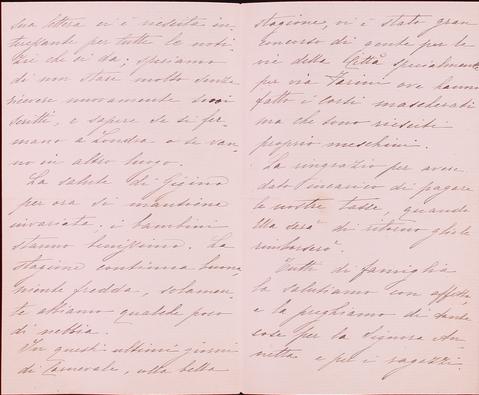 sua lettera ci è riescita in-
teressante per tutte le noti-
zie che ci dà; speriamo
di non stare molto senza
ricevere nuovamente suoi
scritti, e sapere se si fer-
mano a Londra o se van-
no in altro luogo.
La salute di Gigino
per ora si mantiene
invariata; i bambini
stanno benissimo. La
stagione continua buona
niente fredda, solamen-
te abbiamo qualche poco
di nebbia.
In questi ultimi giorni
di Carnevale, colla bella
stagione, vi è stato gran
concorso di gente per le
vie della Città specialmente
per via Farini ove hanno
fatto i corsi mascherati
ma che sono riesciti
proprio meschini.
La ringrazio per avere
dato incarico di pagare
le nostre tasse, quando
Ella sarà di ritorno gliele
rimborserò.
Tutti di famiglia
la salutiamo con affetto
e la preghiamo di tante
cose per la Signora An-
netta e per i ragazzi.